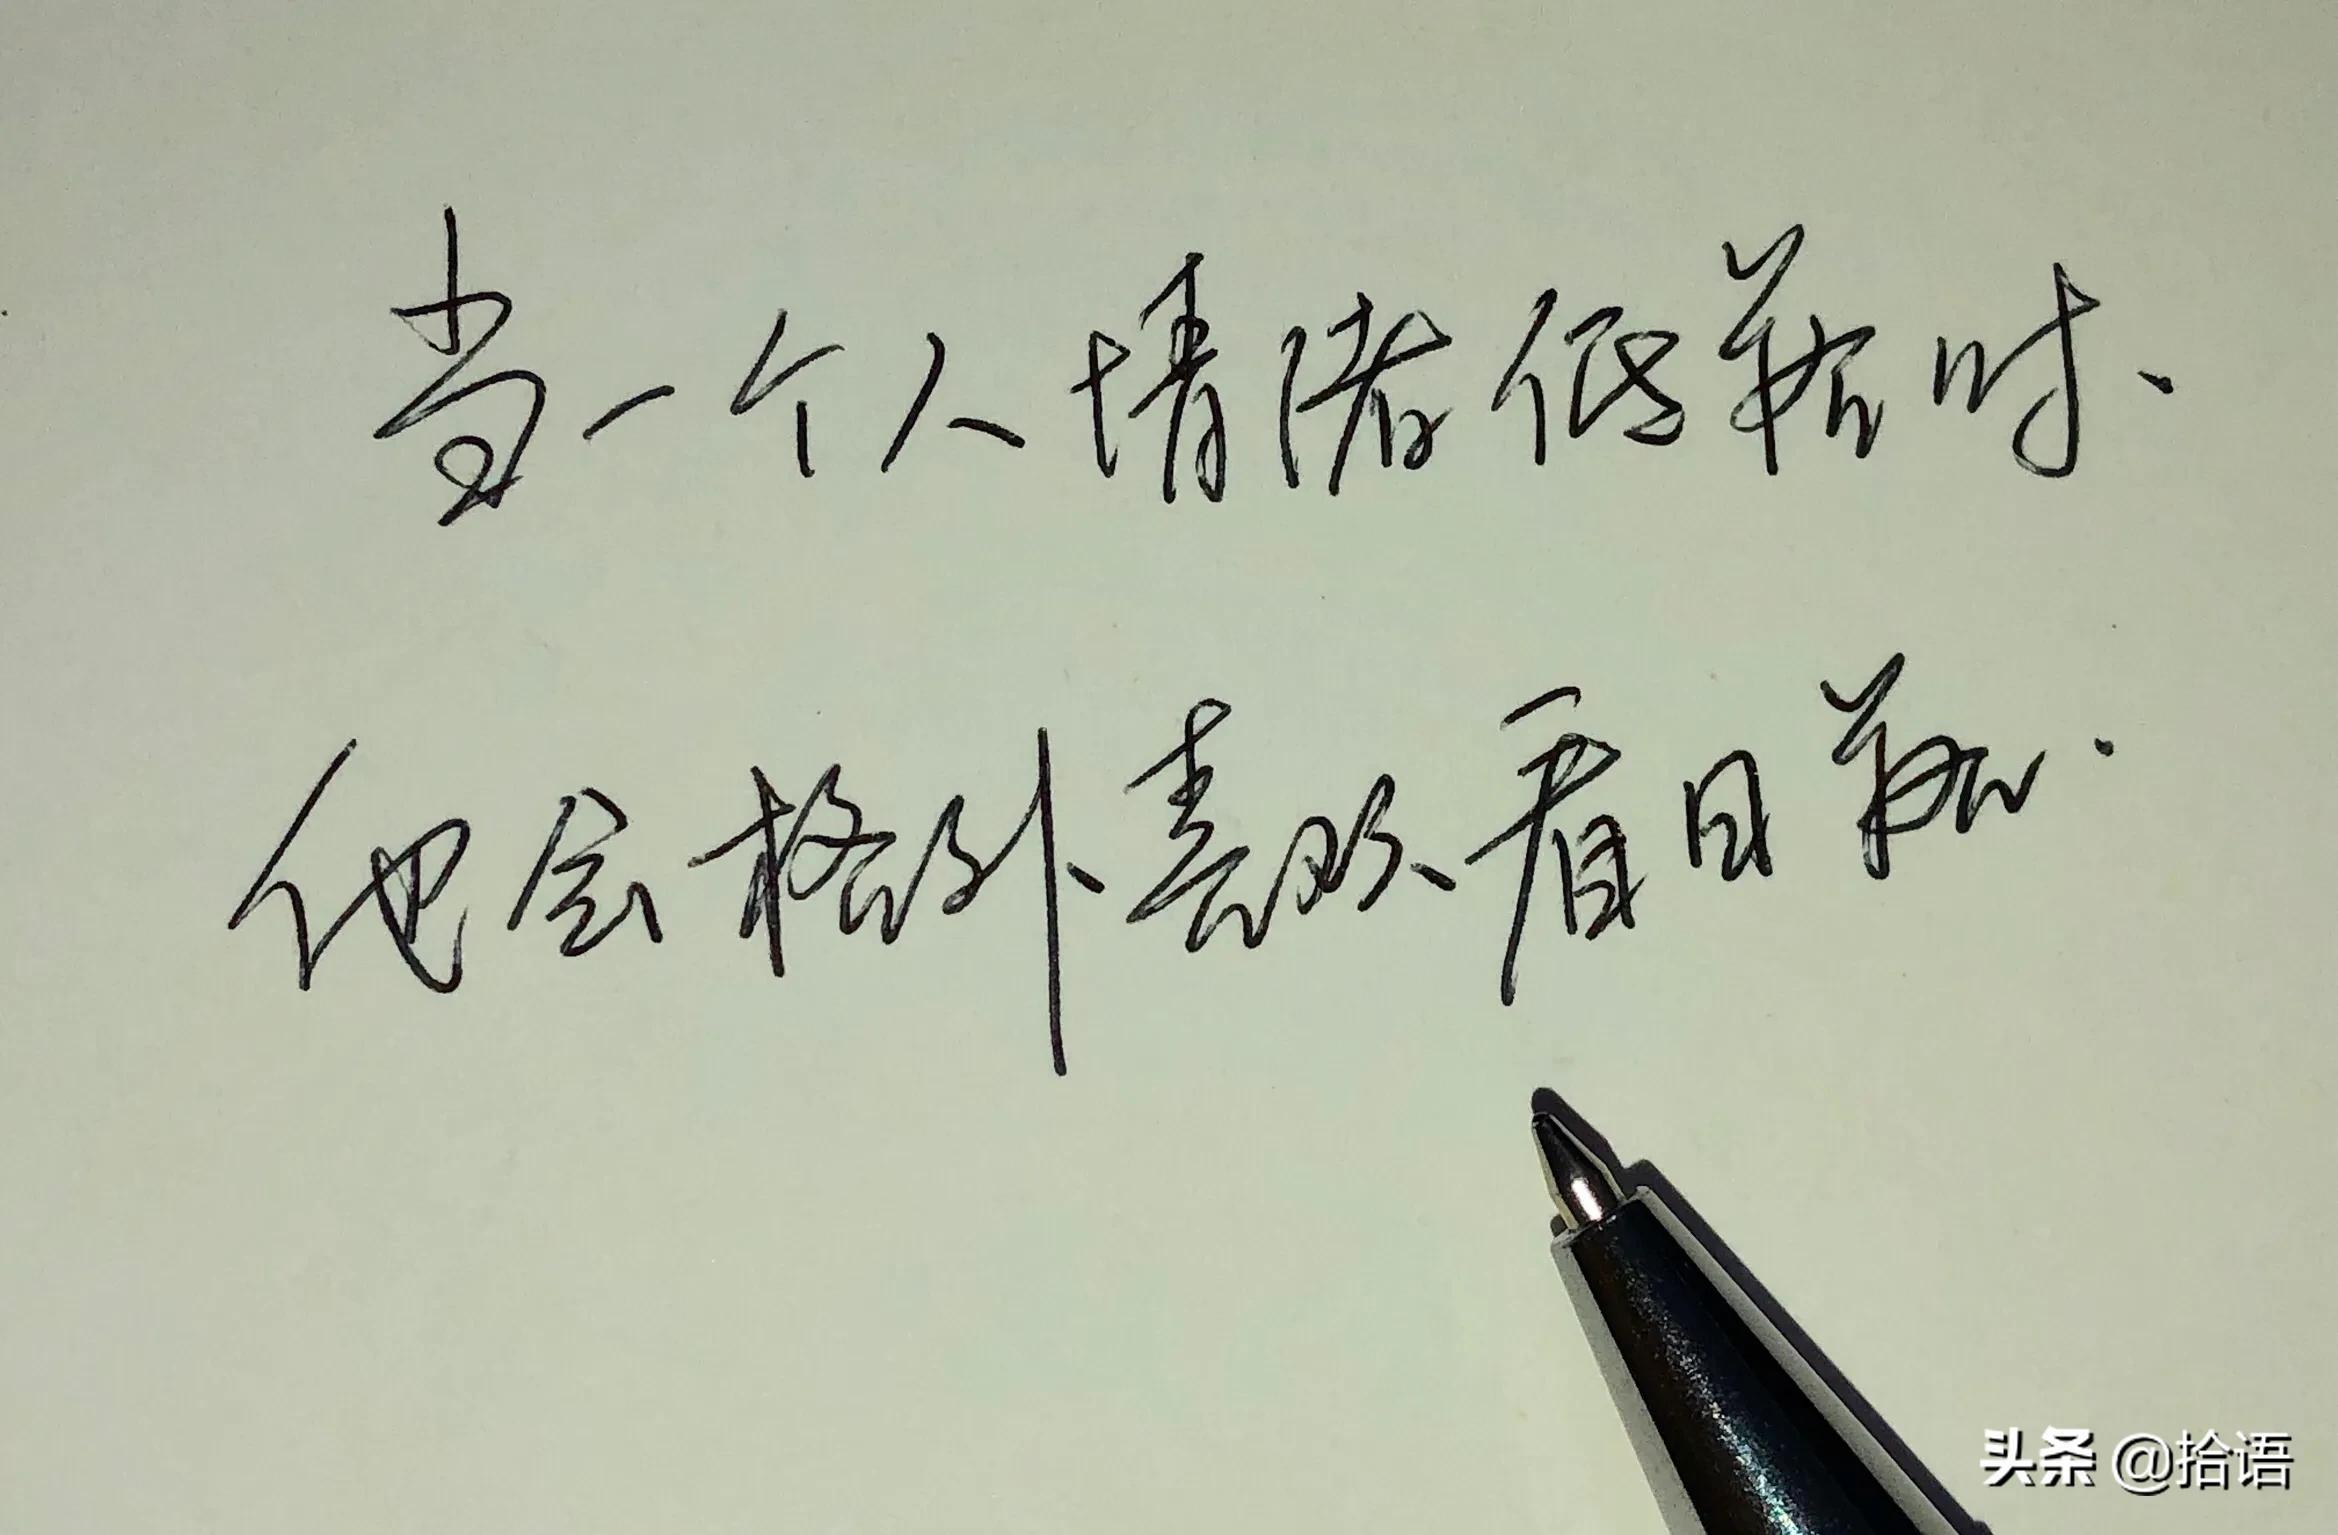 当一个人情绪低落时、
他会格外喜欢看日落.
头条 @拾语